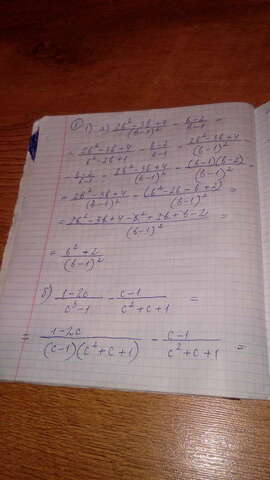 ① 1) а) (2b²-3b+4)/(b-1)² - (b-2)/(b-1) =
= (2b²-3b+4)/(b²-2b+1) - (b-2)/(b-1) = (2b²-3b+4)/(b-1)² -
- (b-2)/(b-1) = (2b²-3b+4)/(b-1)² - (b-1)(b-2)/(b-1)² =
= (2b²-3b+4)/(b-1)² - (b²-2b-b+2)/(b-1)² =
= (2b²-3b+4-b²+2b+b-2)/(b-1)² =
= (b²+2)/(b-1)²
б) (1-2c)/(c³-1) - (c-1)/(c²+c+1) =
= (1-2c)/((c-1)(c²+c+1)) - (c-1)/(c²+c+1) =